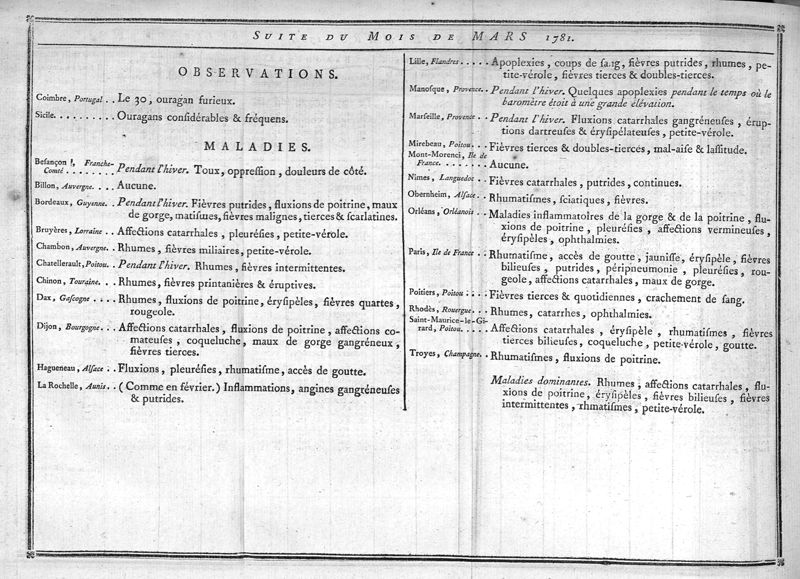 SUITE DU MOIS DE MARS 1781.
OBSERVATIONS.
Coimbre, Portugal . . Le 30, ouragan furieux.
Sicile. . . . . . . . . . Ouragans conſidérables & fréquens.
MALADIES.
Beſançon, Franche-
Comté . . . . . . . . Pendant l'hiver. Toux, oppreſſion, douleurs de côté.
Billon, Auvergne. . . . Aucune.
Bordeaux, Guyenne. . . Pendant l'hiver. Fièvres putrides, fluxions de poitrine, maux
de gorge, matiſmes, fièvres malignes, tierces & ſcarlatines.
Bruyères, Lorraine . . Affections catarrhales, pleuréſies, petite-vérole.
Chambon, Auvergne. . Rhumes, fièvres miliaires, petite-vérole.
Chatellerault, Poitou. . Pendant l'hiver. Rhumes, fièvres intermittentes.
Chinon, Touraine. . . Rhumes, fièvres printanières & éruptives.
Dax, Gaſcogne . . . . . Rhumes, fluxions de poitrine, éryſipèles, fièvres quartes,
rougeole.
Dijon, Bourgogne. . . Affections catarrhales, fluxions de poitrine, affections co-
mateuſes, coqueluche, maux de gorge gangréneux,
fièvres tierces.
Hagueneau, Alſace. . Fluxions, pleuréſies, rhumatiſme, accès de goutte.
La Rochelle, Aunis. . . (Comme en février.) Inflammations, angines gangréneuſes
& putrides.
Lille, Flandres . . . . . Apoplexies, coups de ſang, fièvres putrides, rhumes, pe-
tite-vérole, fièvres tierces & doubles-tierces.
Manoſque, Provence. . Pendant l'hiver. Quelques apoplexies pendant le temps où le
baromètre étoit à une grande élévation.
Marſeille, Provence . . Pendant l'hiver. Fluxions catarrhales gangréneuſes, érup-
tions dartreuſes & éryſipélateuſes, petite-vérole.
Mirebeau, Poitou. . . . Fièvres tierces & doubles-tierces, mal-aiſe & laſſitude.
Mont-Morenci, Ile de
France. . . . . . . . . Aucune.
Nimes, Languedoc . . Fièvres catarrhales, putrides, continues.
Obernheim, Alſace. . Rhumatiſmes, ſciatiques, fièvres.
Orléans, Orléanois . . Maladies inflammatoires de la gorge & de la poitrine, flu-
xions de poitrine, pleuréſies, affections vermineuſes,
éryſipèles, ophthalmies.
Paris, Ile de France . . Rhumatiſme, accès de goutte, jauniſſe, éryſipèle, fièvres
bilieuſes, putrides, péripneumonie, pleuréſies, rou-
geole, affections catarrhales, maux de gorge.
Poitiers, Poitou . . . . Fièvres tierces & quotidiennes, crachement de ſang.
Rhodès, Rouergue. . . Rhumes, catarrhes, ophthalmies.
Saint-Maurice-le-Gi-
rard, Poitou. . . . . Affections catarrhales, éryſipèle, rhumatiſmes, fièvres
tierces bilieuſes, coqueluche, petite-vérole, goutte.
Troyes, Champagne. . Rhumatiſmes, fluxions de poitrine.
Maladies dominantes. Rhumes, affections catarrhales, flu-
xions de poitrine, éryſipèles, fièvres bilieuſes, fièvres
intermittentes, rhmatiſmes, petite-vérole.